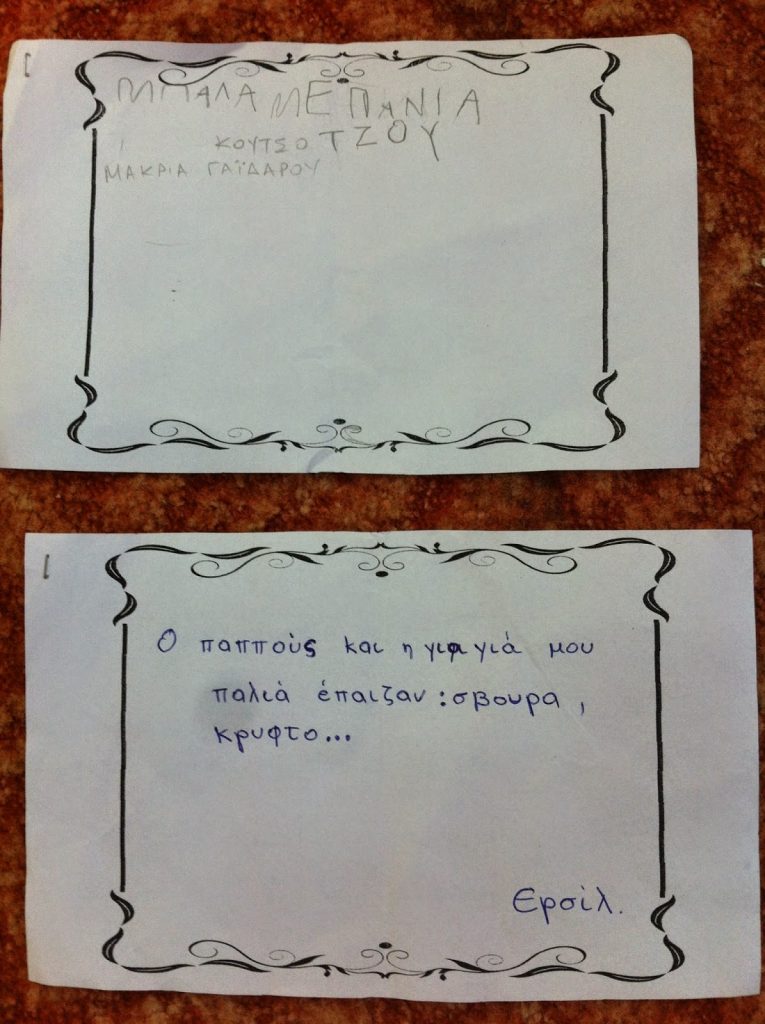 ΜΠΑΛΑ ΜΕ ΠΑΝΙΑ
ΚΟΥΤΣΟ ΤΖΟΥ
ΜΑΚΡΙΑ ΓΑΪΔΑΡΟΥ
Ο παππούς και η γιαγιά μου
παλιά έπαιζαν : σβουρα ,
κρυφτο...
Ερσίλ.